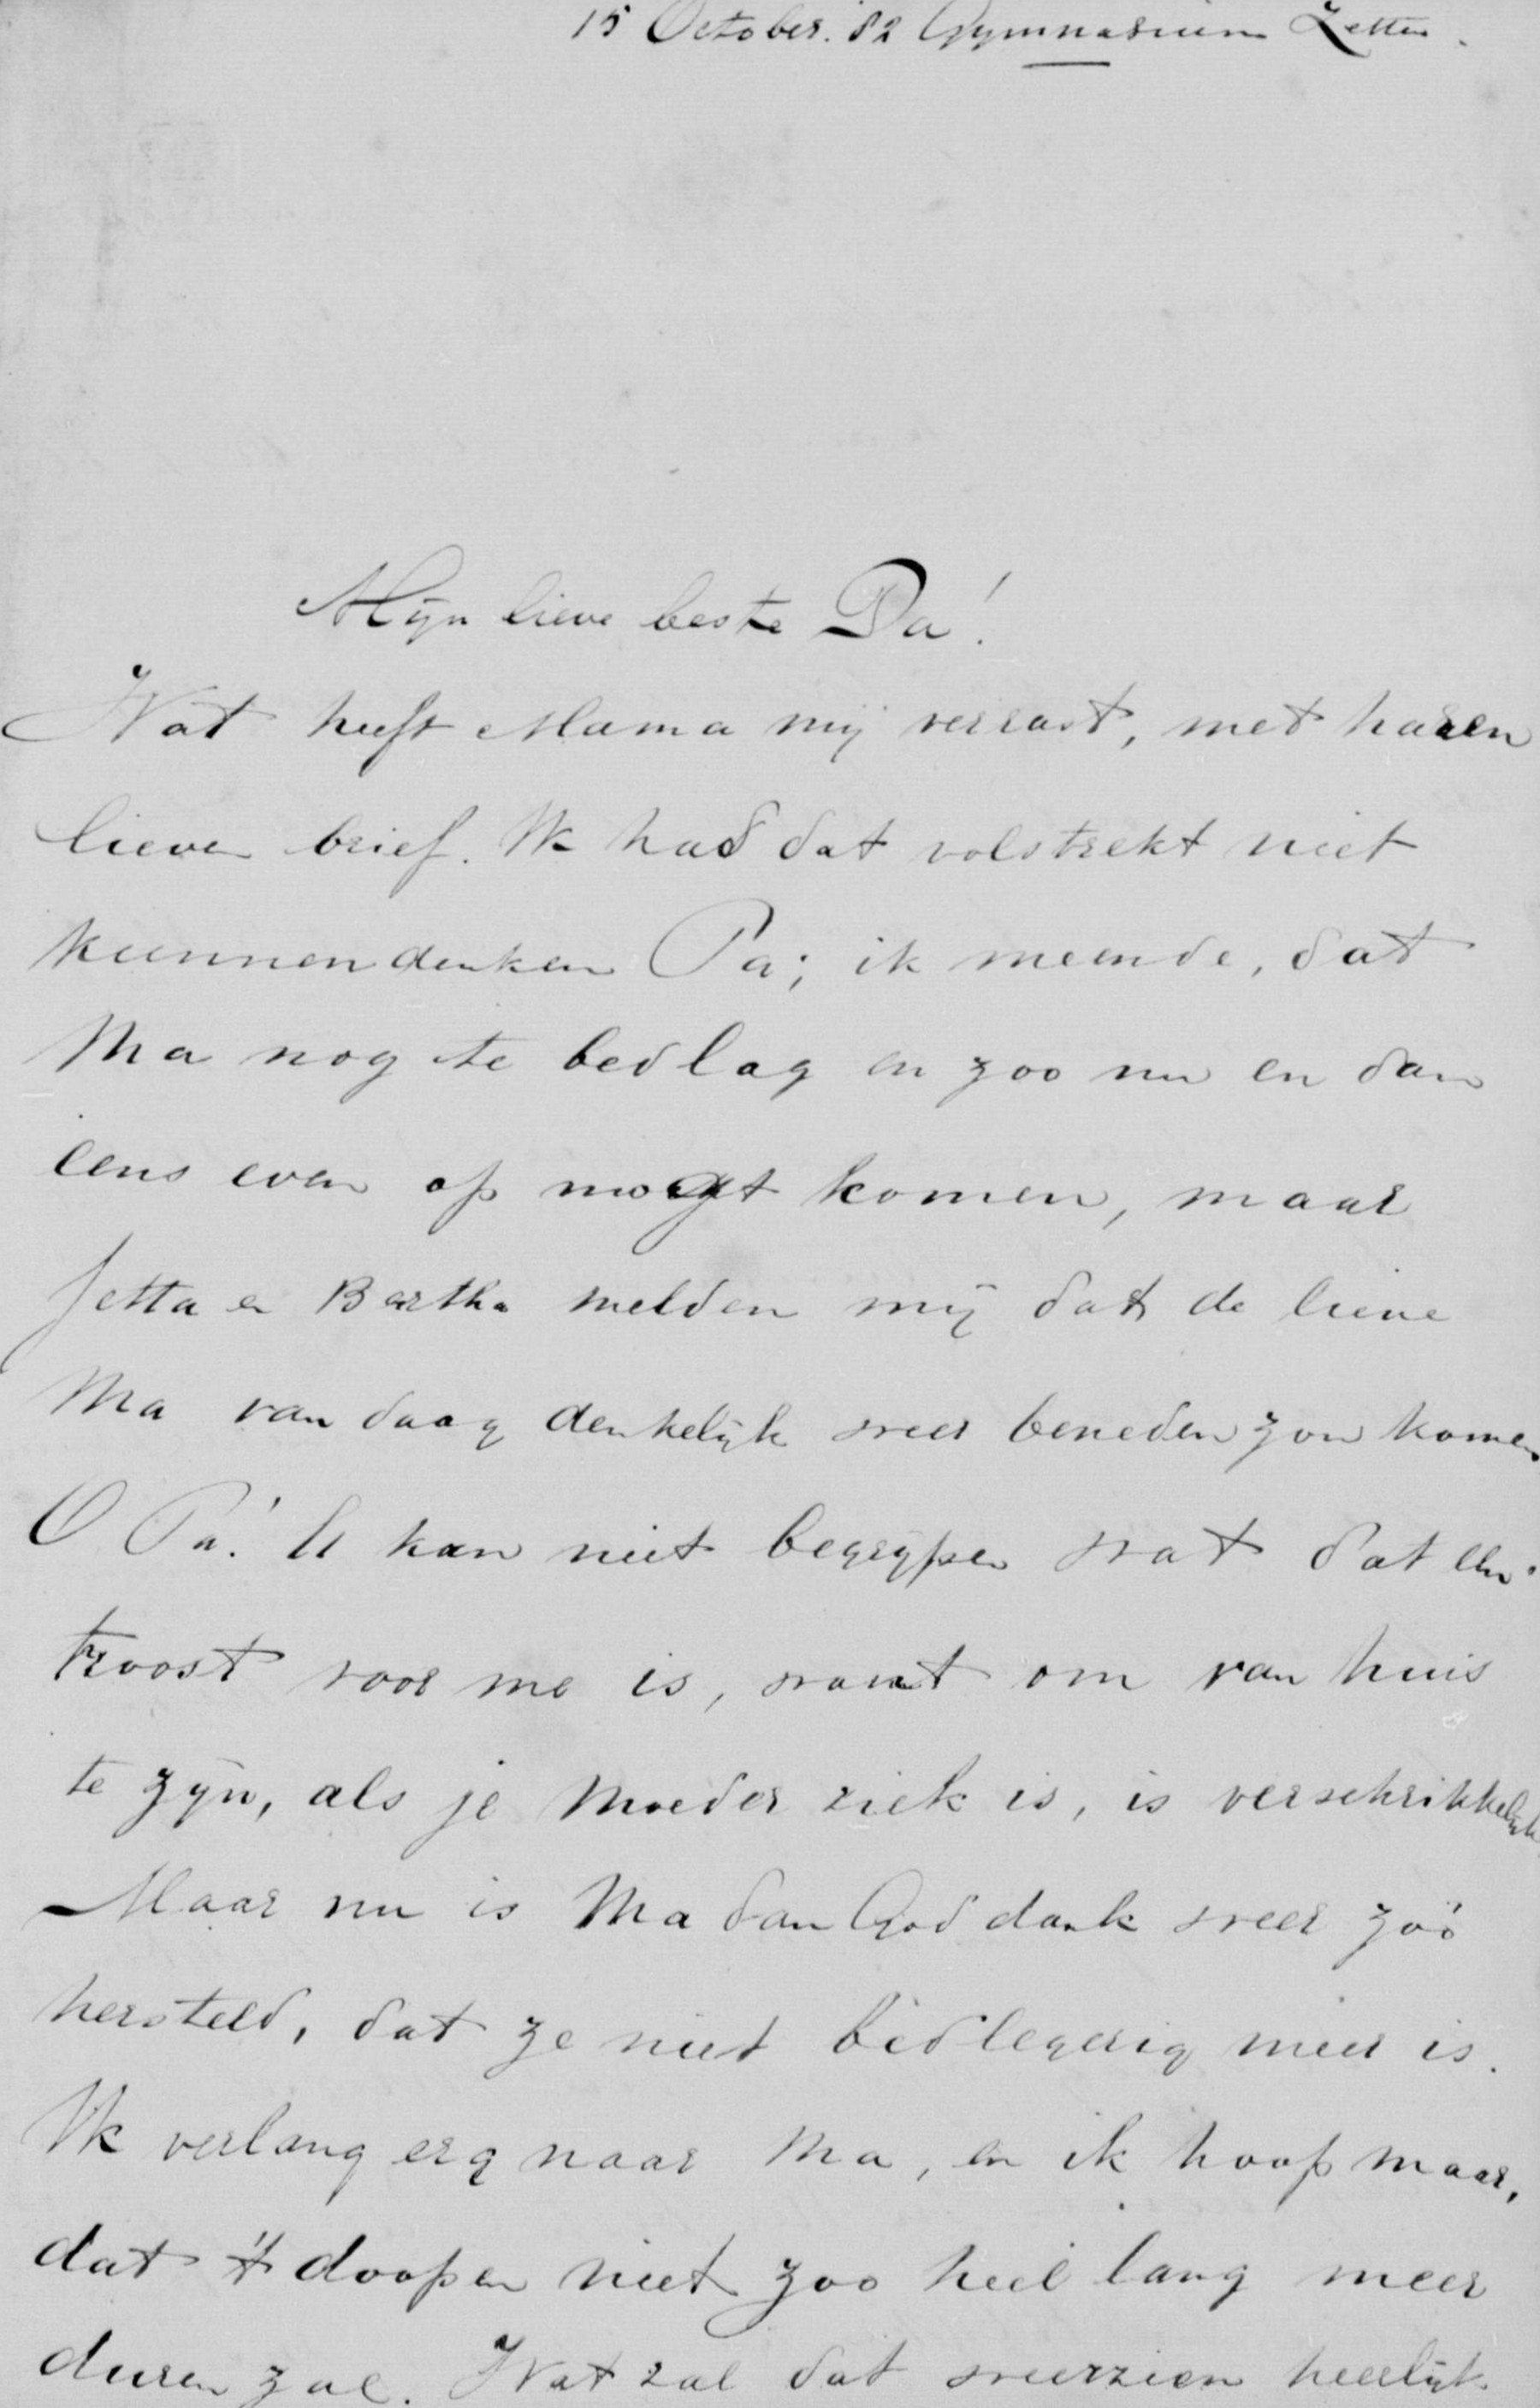 15 October. 82 Gymnasium Zetten.
Mijn lieve beste Pa!
Wat heeft Mama mij verrast, met haren
lieven brief. Ik had dat volstrekt niet
kunnen denken Pa; ik meende, dat
Ma nog te bed lag en zoo nu en dan
eens even op mogt komen, maar
Jetta en Bertha melden mij dat de lieve
Ma van daag denkelijk weer beneden zou komen
O Pa! U kan niet begrijpen wat dat een
troost voor me is, want om van huis
te zijn, als je moeder ziek is, is verschrikkelijk
Maar nu is Ma dan God dank weer zóó
hersteld, dat ze niet bedlegerig meer is.
Ik verlang erg naar Ma, en ik hoop maar,
dat 't doopen niet zoo heel lang meer
duren zal. Wat zal dat weerzien heerlijk